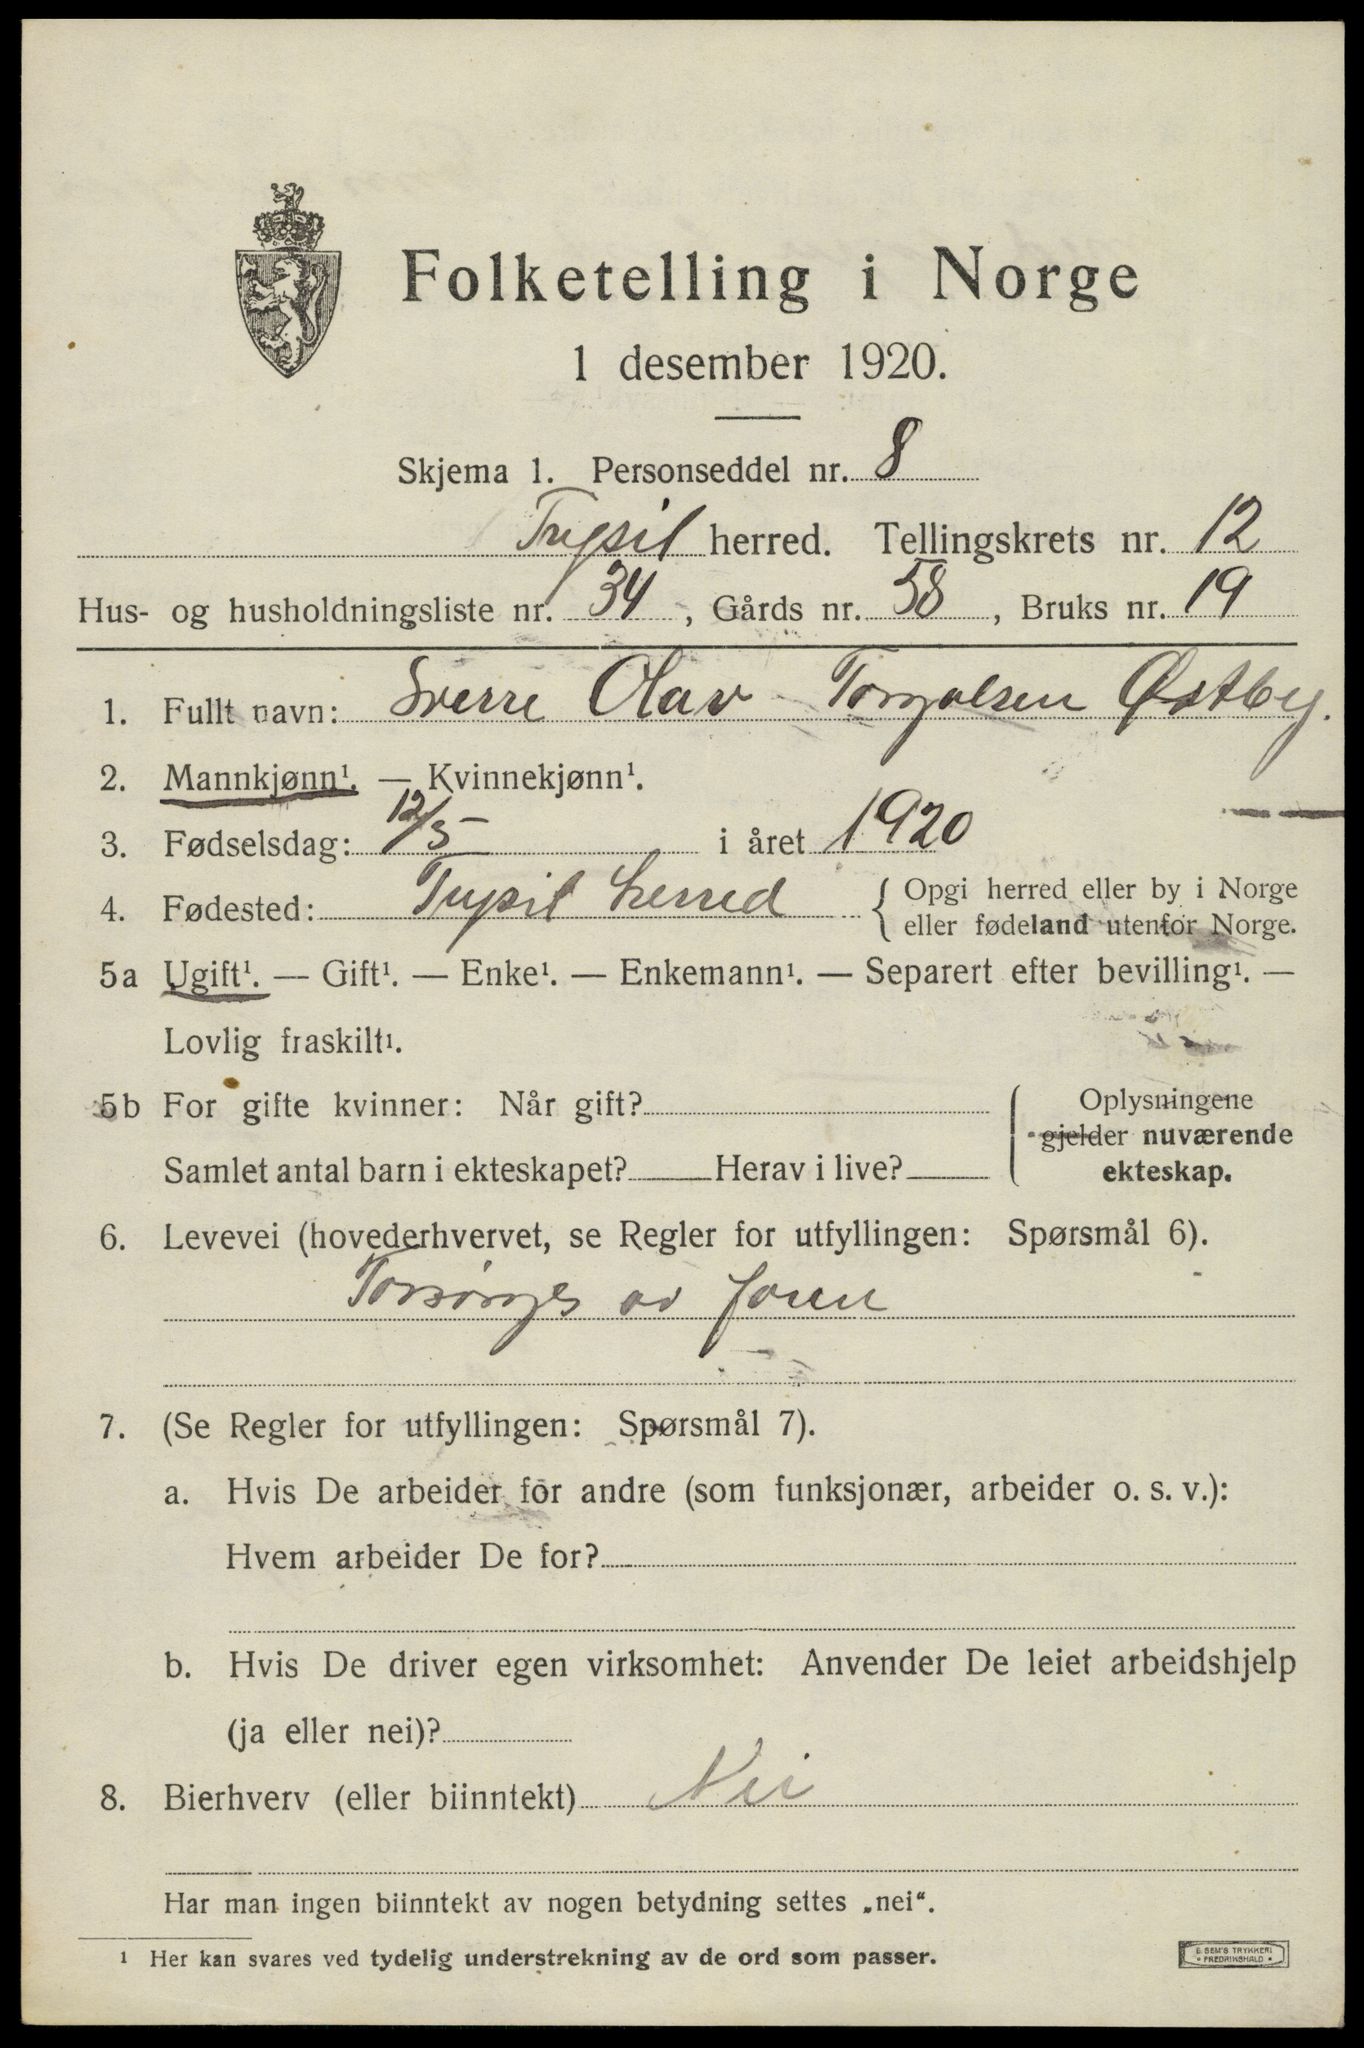 Folketelling i Norge
1 desember 1920.
Skjema 1. Personseddel nr. 8
Trysil herred. Tellingskrets nr. 12
Hus- og husholdningsliste nr. 34, Gårds nr. 58, Bruks nr. 19
1. Fullt navn: Sverre Olav Torgalsen Østby.
2. Mannkjønn¹. — Kvinnekjønn¹.
3. Fødselsdag: 12/5 i året 1920
4. Fødested: Trysil herred { Opgi herred eller by i Norge
eller fødeland utenfor Norge.
5a Ugift¹. — Gift¹. — Enke¹. — Enkemann¹. — Separert efter bevilling¹. —
Lovlig fraskilt¹.
5b For gifte kvinner: Når gift?
Samlet antal barn i ekteskapet? Herav i live?
{ Oplysningene
gjelder nuværende
ekteskap.
6. Levevei (hovederhvervet, se Regler for utfyllingen: Spørsmål 6).
Forsørges av faren
7. (Se Regler for utfyllingen: Spørsmål 7).
a. Hvis De arbeider for andre (som funksjonær, arbeider o. s. v.):
Hvem arbeider De for?
b. Hvis De driver egen virksomhet: Anvender De leiet arbeidshjelp
(ja eller nei)?
8. Bierhverv (eller biinntekt) Nei
Har man ingen biinntekt av nogen betydning settes „nei“.
¹ Her kan svares ved tydelig understrekning av de ord som passer.
E. SEM'S TRYKKERI
• FREDRIKSHALD •